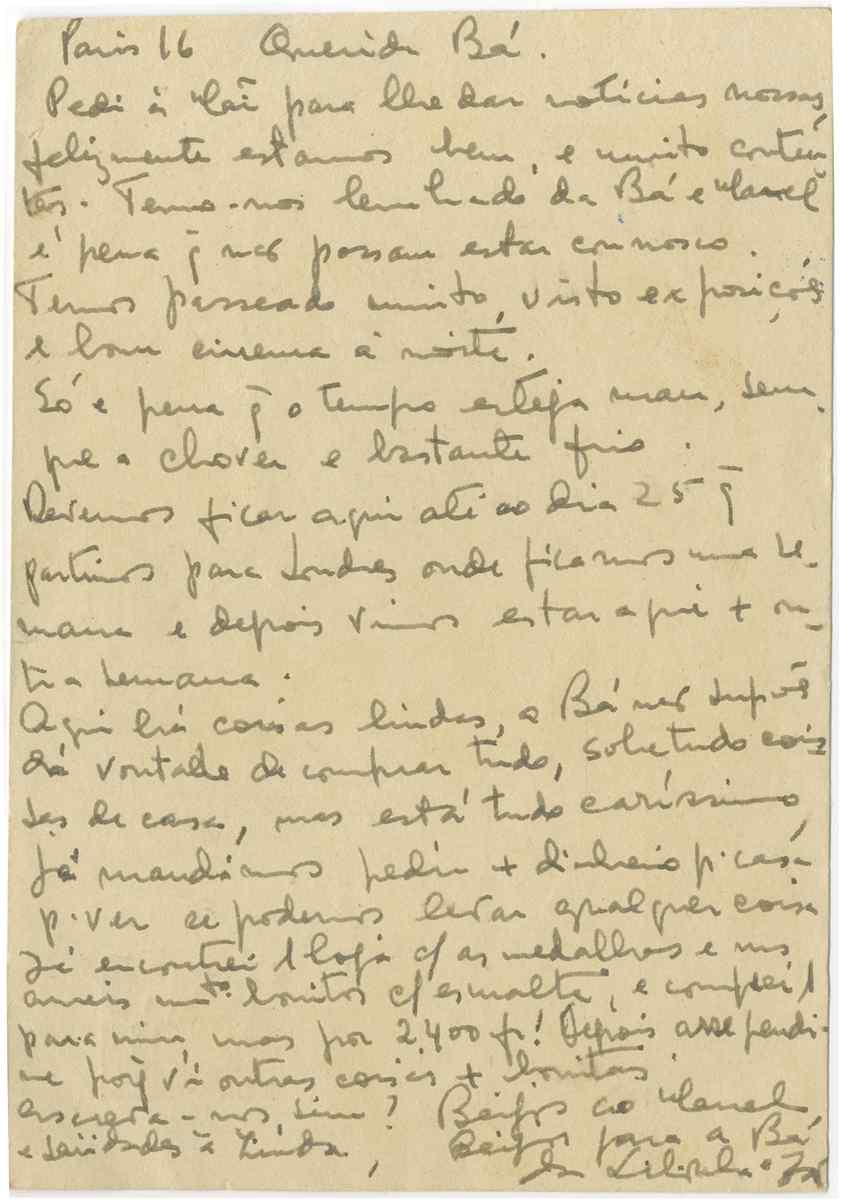 Paris 16 Querida Bá.
Pedi à Mãi para lhe dar noticias nossas,
felizmente estamos bem, e muito conten
tes. Temo-nos lembrado da Bá e Manel
é pena q̄ não possam estar connosco.
Temos passeado muito, visto exposições
e bom cinema à noite.
Só é pena q̄ o tempo esteja mau, sem-
pre a chover e bastante frio.
Devemos ficar aqui até ao dia 25 q̄
partimos para Londres onde ficamos uma se-
mana e depois vimos estar aqui + ou-
tra semana.
Aqui há coisas lindas, a Bá não supõe
dá vontade de comprar tudo, sobretudo coi-
sas de casa, mas está tudo caríssimo,
Já mandámos pedir + dinheiro p. casa
p. ver se podemos levar qualquer coisa
Já encontrei 1 loja c/ as medalhas e uns
aneis mto. bonitos c/ esmalte, e comprei 1
para mim, mas por 2.400 fr! Depois arrependi-
me porq̄ vi outras coisas + bonitas.
escreva-nos, sim? Beijos ao Manel
e saüdades à Linda, Beijos para a Bá
da e Zé